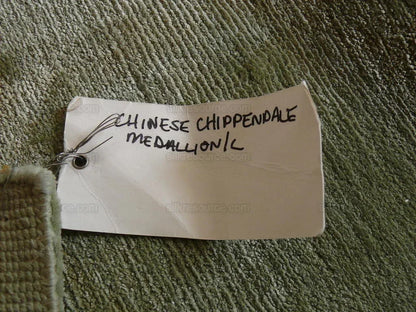 CHINESE CHIPPENDALE
MEDALLION/C